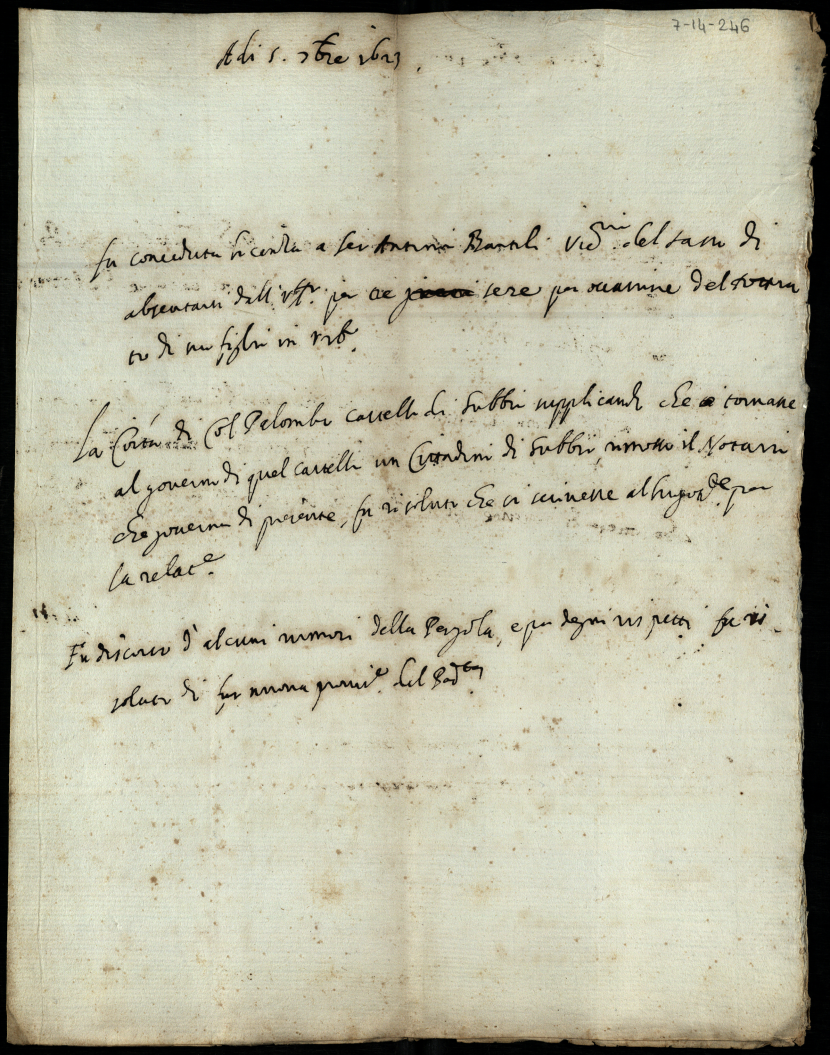 7-14-246
Adi 5. 7bre 1623
fu conceduta licentia a ser Antonio Bartoli del sasso di
absentarsi dall'uff.o per tre sere per occasione del
to di un figlio in Urb.o
La Com.tà di Col Palombo castello di Gubbio supplicando che si tornasse
al governo di quel castello un Cittadino di Gubbio, rimosso il Notario
che governa di presente, fu risoluto che si scrivesse al luogot.e per
la relat.e
Fu discorso d'alcuni rumori della Pergola, e per degni rispetti fu ri
soluto di far nuova provis.e del Pod.tà